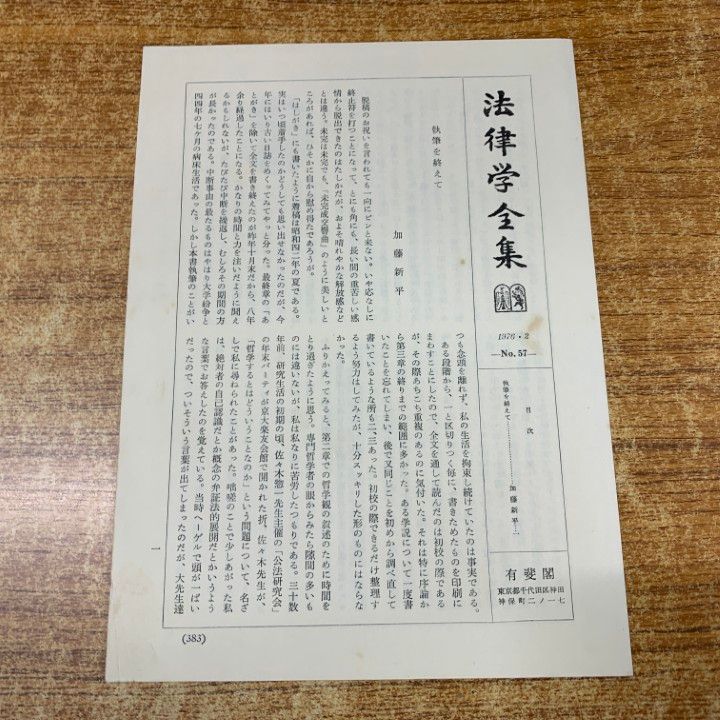 法律学全集
1976・2
—No. 57—
目次
執筆を終えて…………加藤新平…一
有斐閣
東京都千代田区神田
神保町二ノ一七
執筆を終えて
加藤新平
脱稿のお祝いを言われても一向にピンと来ない。いや応なしに
終止符を打つことになって、とにも角にも、長い間の重苦しい感
情から脱出できたのはたしかだが、およそ晴れやかな解放感など
とは違う。未完は未完でも、「未完成交響曲」のように美しいと
ころがあれば、ひそかに自から慰め得たであろうが。
「はしがき」にも書いたように着稿は昭和四二年の夏である。
実はいつ頃着手したのかどうしても思い出せなかったのだが、今
年にはいり古い日誌をめくってみてやっと分った。最終章の「あ
とがき」を除いて全文を書き終えたのが昨年十月末だから、八年
余り経過したことになる。かなりの時間と力を注いだように聞え
るかもしれないが、たびたび中断を繰返し、むしろその期間の方
が長かったのである。中断事由の最たるものはやはり大学紛争と
四四年の七ヶ月の病床生活であった。しかし本書執筆のことがい
つも念頭を離れず、私の生活を拘束し続けていたのは事実である。
ある段階から、一と区切りつく毎に、書きためたものを印刷に
まわすことにしたので、全文を通して読んだのは初校の際である
が、その際あちこち重複のあるのに気付いた。それは特に序論か
ら第三章の終りまでの範囲に多かった。ある学説について一度書
いたことを忘れてしまい、後で又同じことを初めから調べ直して
書いているような所も二、三あった。初校の際できるだけ整理す
るよう努力はしてみたが、十分スッキリした形のものにはならな
かった。
ふりかえってみると、第二章での哲学観の叙述のために時間を
とり過ぎたように思う。専門哲学者の眼からみたら隙間の多いも
のには違いないが、私は私なりに苦労したつもりである。三十数
年前、研究生活の初期の頃、佐々木惣一先生主催の「公法研究会」
の年末パーティが京大楽友会館で開かれた折、佐々木先生が、
「哲学するとはどういうことなのか」という問題について、名ざ
しで私に尋ねられたことがあった。咄嗟のことで少しあがった私
は、絶対者の自己認識だとか概念の弁証法的展開だとかいうよう
な言葉でお答えしたのを覚えている。当時ヘーゲルで頭が一ぱい
だったので、ついそういう言葉が出てしまったのだが、大先生達
一
(383)